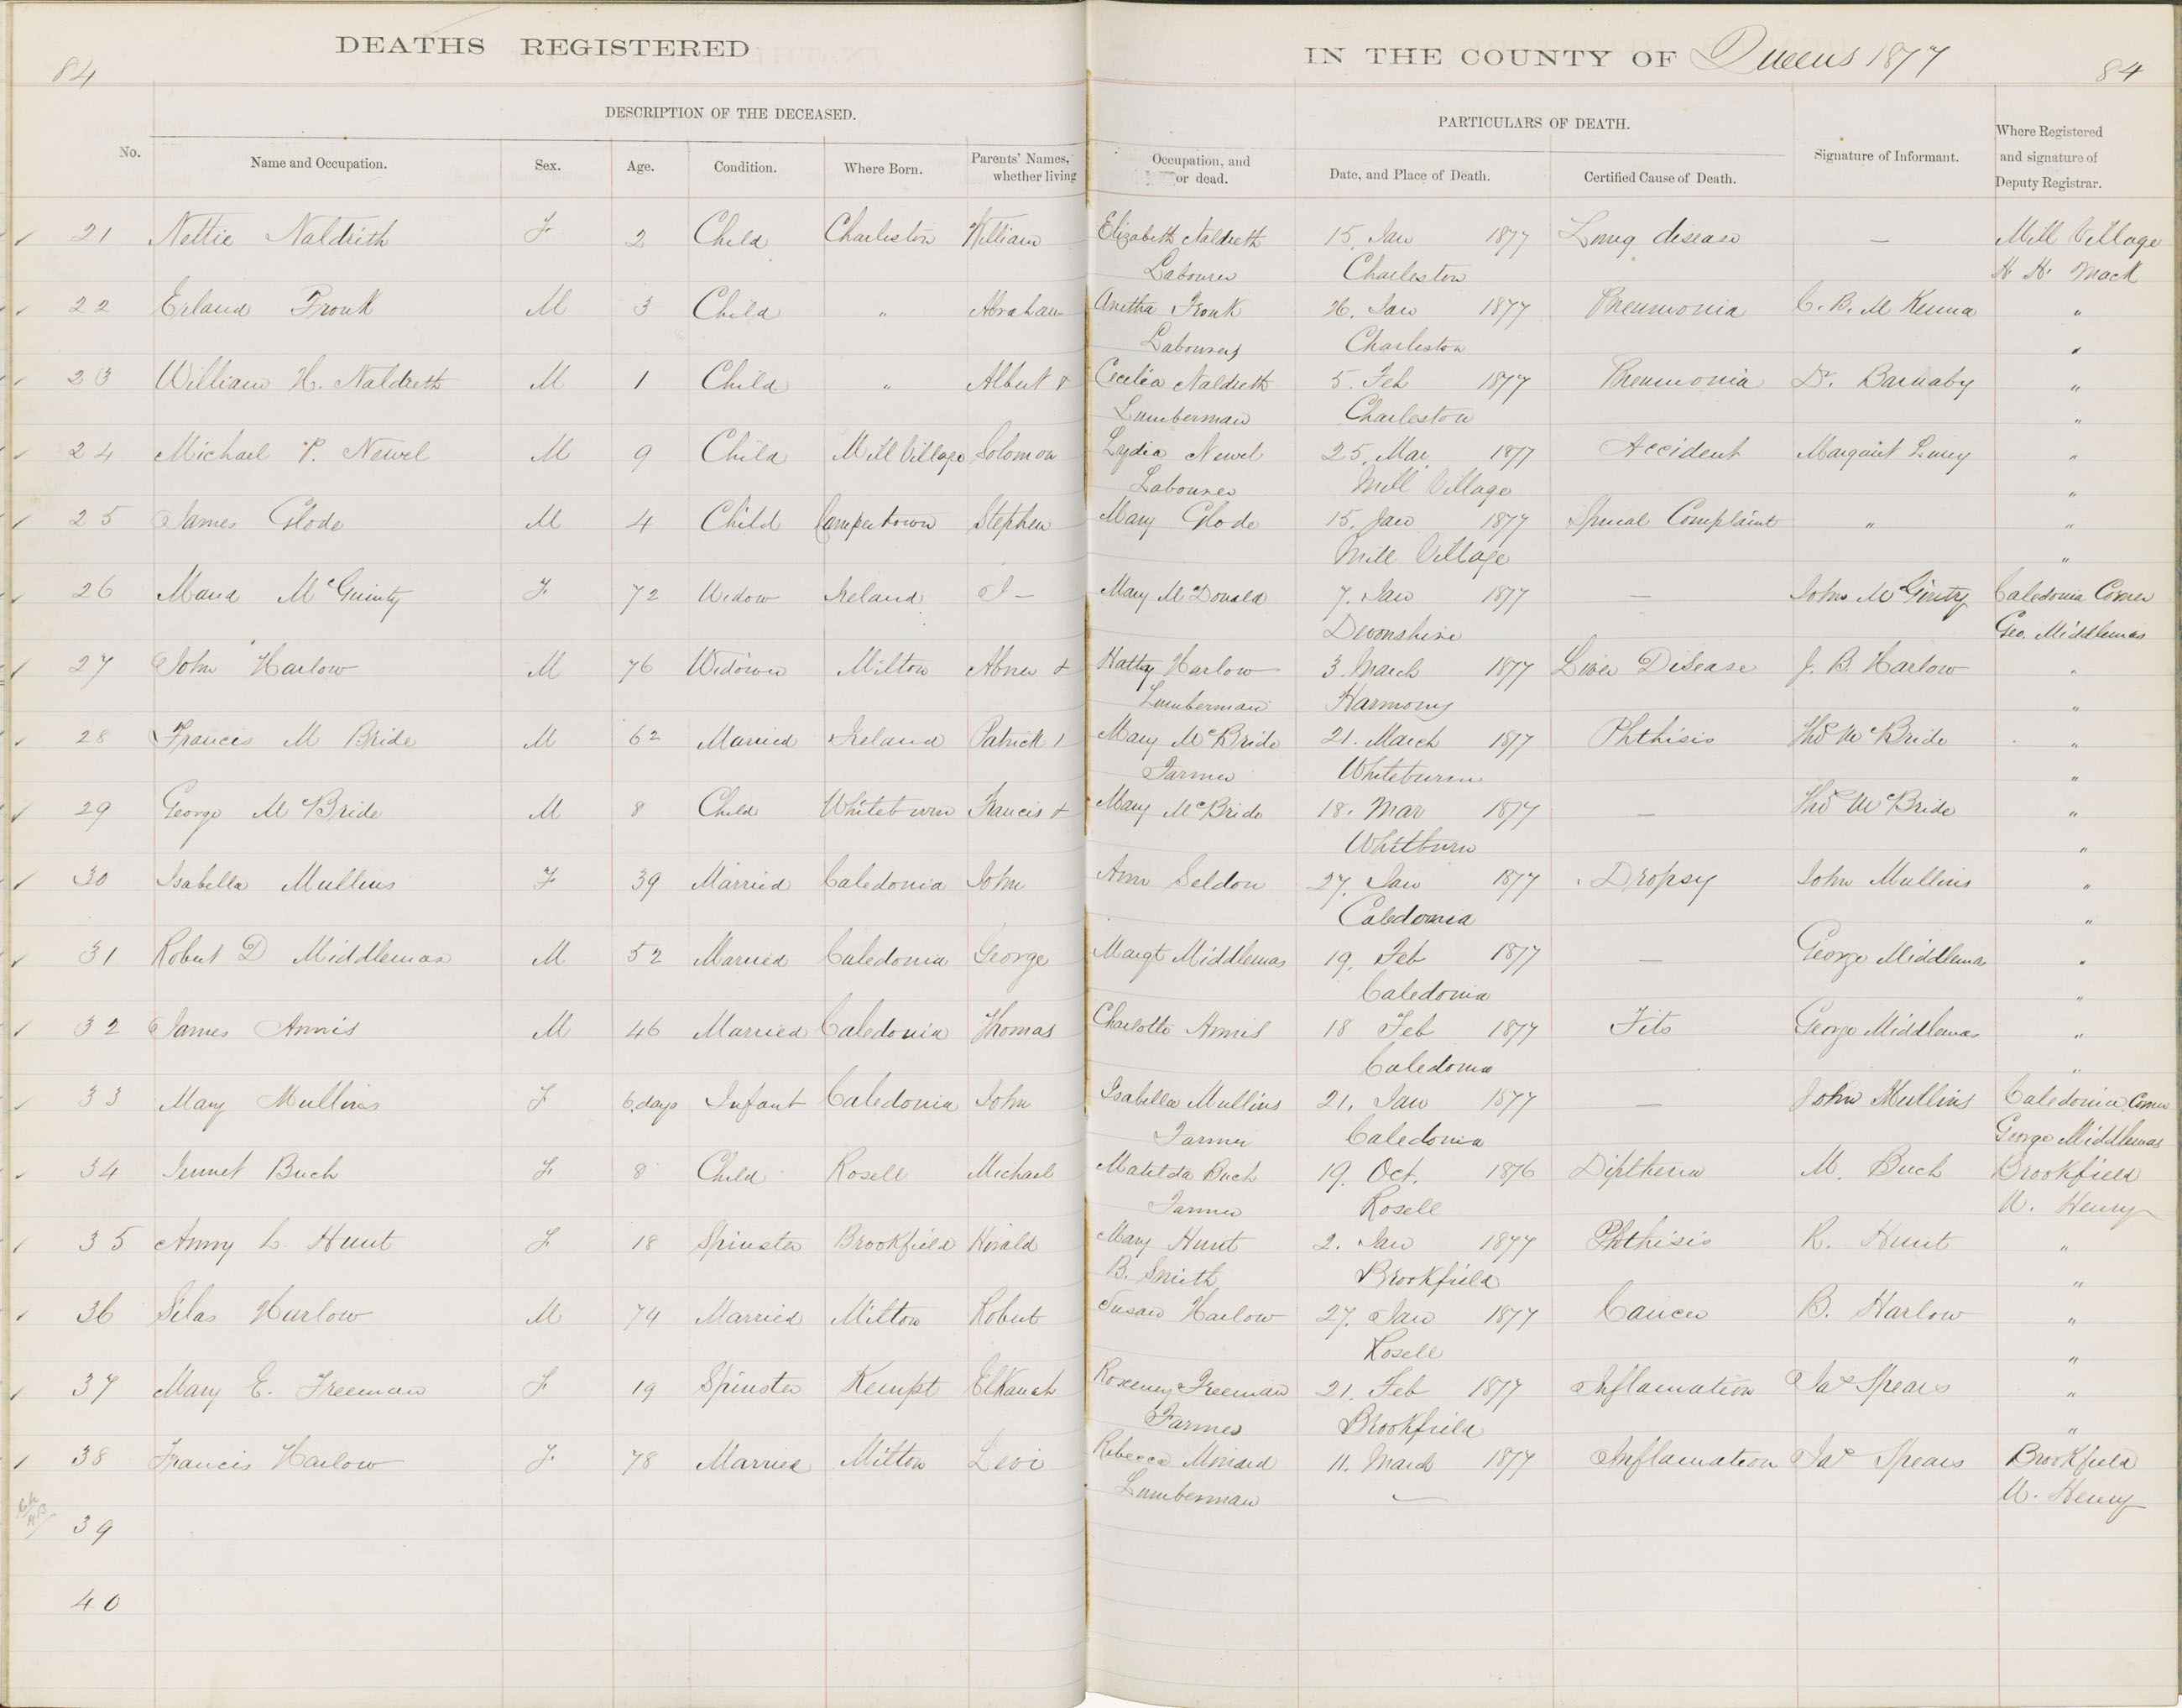 DEATHS REGISTERED IN THE COUNTY OF Queens 1877
84 84
DESCRIPTION OF THE DECEASED. PARTICULARS OF DEATH.
No. Name and Occupation. Sex. Age. Condition. Where Born. Parents' Names, whether living Occupation, and or dead. Date, and Place of Death. Certified Cause of Death. Signature of Informant. Where Registered and signature of Deputy Registrar.
21 Nettie Naldrith F 2 Child Charleston William Elizabeth Naldreth 15. Jan 1877 Lung disease — Mill Village
Labourer Charleston H. H. Mack
22 Erland Fronk M 3 Child " Abraham Anitha Fronk 26. Jan 1877 Pneumonia C. B. McKenna "
Labourer Charleston "
23 William H. Naldreth M 1 Child " Albert & Cecilia Naldreth 5. Feb 1877 Pneumonia Dr. Barnaby "
Lumberman Charleston "
24 Michael P. Newel M 9 Child Mill Village Solomon Lydia Newel 25. Mar 1877 Accident Margaret Luxey "
Labourer Mill Village "
25 James Glode M 4 Child Camperdown Stephen Mary Glode 15. Jan 1877 Spinal Complaint " "
Mill Village "
26 Maria McGuinty F 72 Widow Ireland J — Mary McDonald 7. Jan 1877 — John McGinty Caledonia Corner
Devonshire Geo. Middlemas
27 John Harlow M 76 Widower Milton Abner & Hatty Harlow 3. March 1877 Liver Disease J. B. Harlow "
Lumberman Harmony "
28 Francis McBride M 62 Married Ireland Patrick Mary McBride 21. March 1877 Phthisis Thos McBride "
Farmer Whiteburn "
29 George McBride M 8 Child Whiteburn Francis & Mary McBride 18. Mar 1877 — Thos McBride "
Whitburn "
30 Isabella Mullins F 39 Married Caledonia John Ann Seldon 27. Jan 1877 Dropsy John Mullins "
Caledonia "
31 Robert D Middlemas M 52 Married Caledonia George Margt Middlemas 19. Feb 1877 — George Middlemas "
Caledonia "
32 James Annis M 46 Married Caledonia Thomas Charlotte Annis 18 Feb 1877 Fits George Middlemas "
Caledonia "
33 Mary Mullins F 6 days Infant Caledonia John Isabella Mullins 21. Jan 1877 — John Mullins Caledonia Corner
Farmer Caledonia George Middlemas
34 Jennet Buch F 8 Child Rosell Michael Matilda Buch 19. Oct. 1876 Diptheria M. Buch Brookfield
Farmer Rosell W. Henry
35 Anny L Hunt F 18 Spinster Brookfield Hirald Mary Hunt 2. Jan 1877 Phthisis R. Hunt "
B. Smith Brookfield "
36 Silas Harlow M 74 Married Milton Robert Susan Harlow 27. Jan 1877 Cancer B. Harlow "
Rosell "
37 Mary E. Freeman F 19 Spinster Kempt Elkanah Roxeney Freeman 21. Feb 1877 Inflamation Jas Spears "
Farmer Brookfield "
38 Francis Harlow F 78 Married Milton Levi Rebecca Minard 11. March 1877 Inflamation Jas Spears Brookfield
Lumberman — W. Henry
39
40